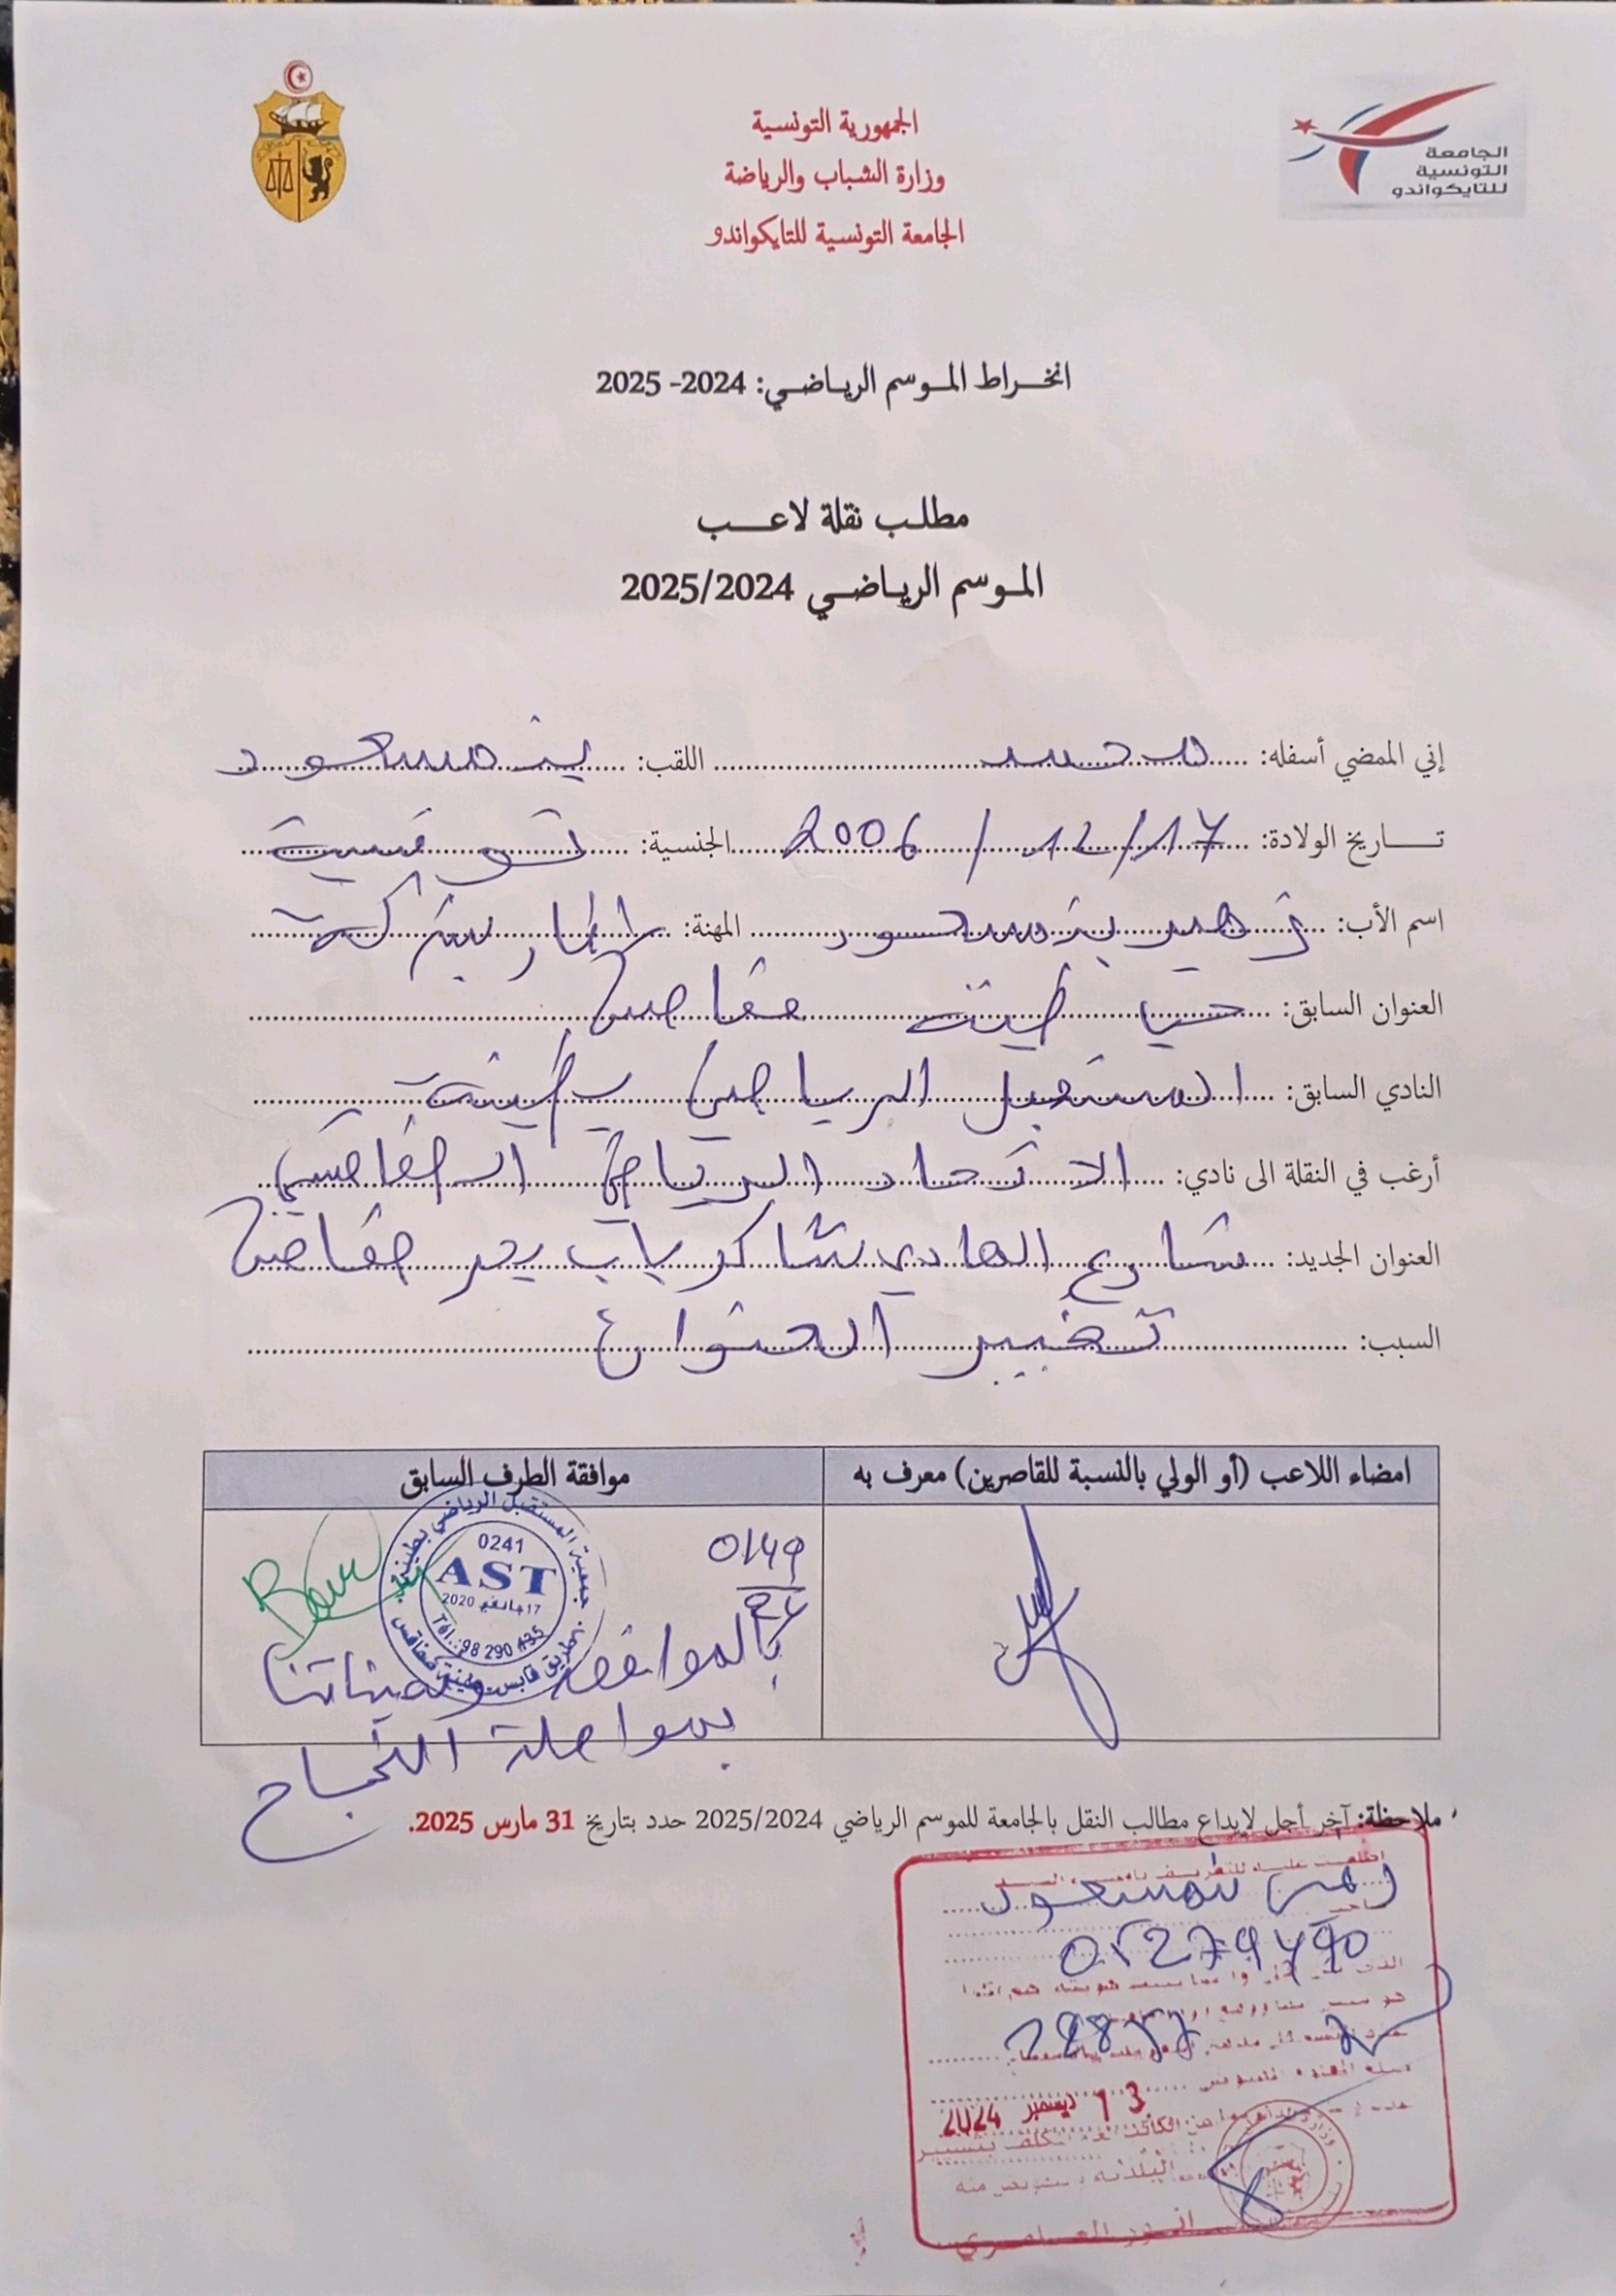 الجمهورية التونسية
وزارة الشباب والرياضة
الجامعة التونسية للتايكواندو
الجامعة
التونسية
للتايكواندو
انخراط الموسم الرياضي: 2024- 2025
مطلب نقلة لاعب
الموسم الرياضي 2025/2024
إني الممضي أسفله: محمد اللقب: بنمسعود
تاريخ الولادة: 17/12/2006 الجنسية: تونسية
اسم الأب: زهير بنمسعود المهنة: إطار بشركة
العنوان السابق: طينة صفاقس
النادي السابق: المستقبل الرياضي بطينة
أرغب في النقلة الى نادي: الاتحاد الرياضي الصفاقسي
العنوان الجديد: شارع الهادي شاكر باب بحر صفاقس
السبب: تغيير العنوان
امضاء اللاعب (أو الولي بالنسبة للقاصرين) معرف به
موافقة الطرف السابق
جمعية المستقبل الرياضي بطينة
0241
AST
17 جانفي 2020
Tél.: 98 290 435
طريق قابس طينة صفاقس
بالموافقة وتمنياتنا
بمواصلة النجاح
ملاحظة: آخر أجل لإيداع مطالب النقل بالجامعة للموسم الرياضي 2025/2024 حدد بتاريخ 31 مارس 2025.
زهير بنمسعود
13 ديسمبر 2024